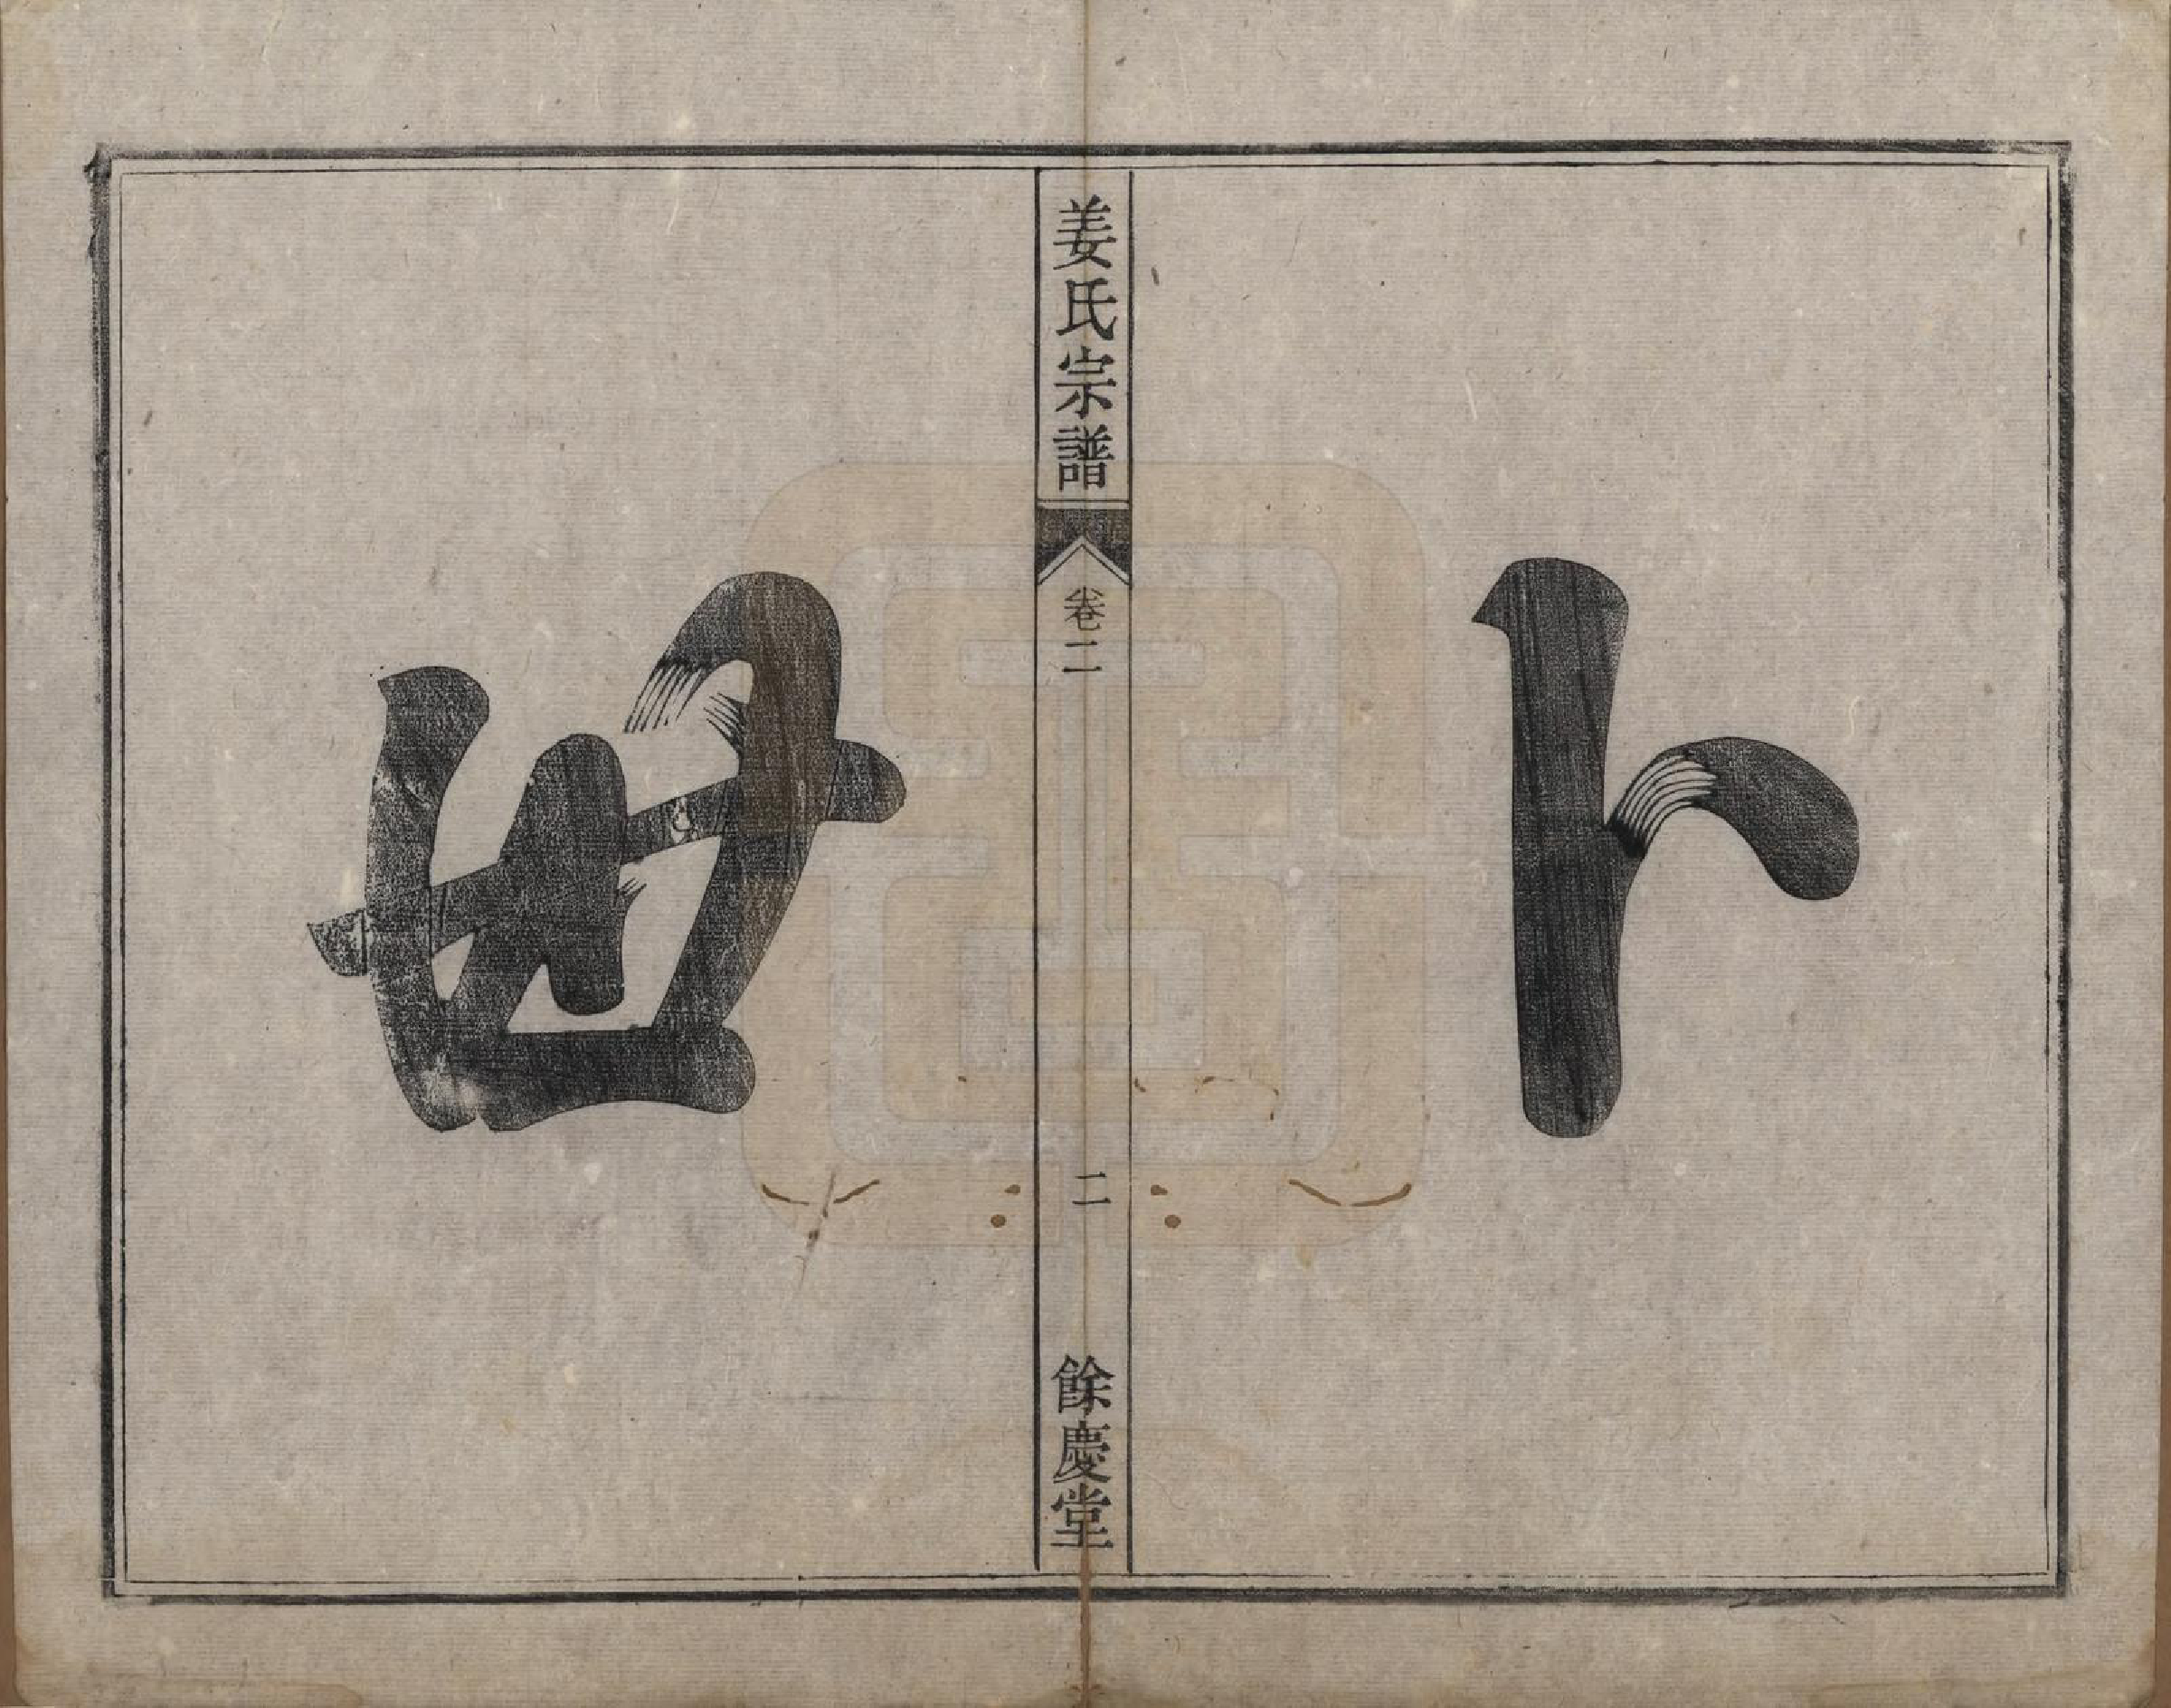 卜
姜氏宗譜
卷二
二
餘慶堂
世